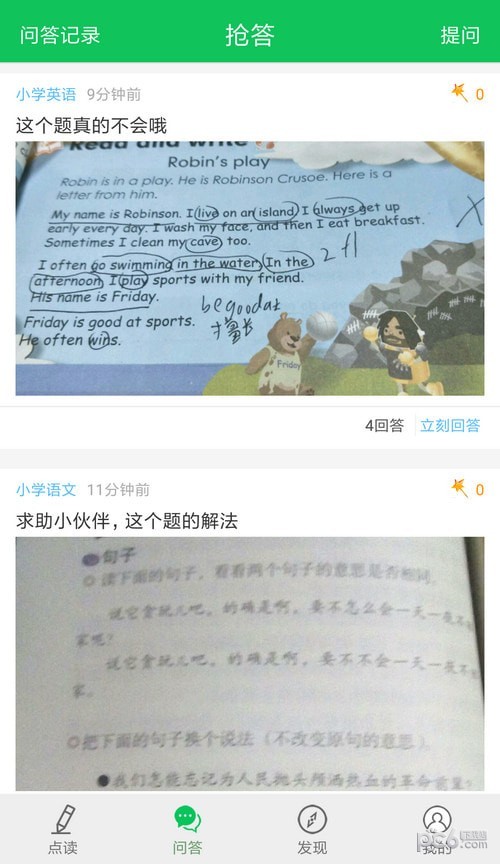 问答记录 抢答 提问
小学英语 9分钟前 0
这个题真的不会哦
Read and write
Robin's play
Robin is in a play. He is Robinson Crusoe. Here is a
letter from him.
My name is Robinson. I live on an island. I always get up
early every day. I wash my face, and then I eat breakfast.
Sometimes I clean my cave too.
I often go swimming in the water. In the 2 fl
afternoon I play sports with my friend.
His name is Friday.
be good at
Friday is good at sports.
擅长
He often wins.
Friday
4回答 立刻回答
小学语文 11分钟前 0
求助小伙伴，这个题的解法
句子
读下面的句子，看看两个句子的意思是否相同。
说它贪玩儿吧，的确是啊，要不怎么会一天一夜不
家呢？
说它贪玩儿吧，的确是啊，要不不会一天一夜不
家。
把下面的句子换个说法（不改变原句的意思）。
我们怎能忘记为人民抛头颅洒热血的革命前辈？
点读 问答 发现 我的
pc6下载站
.com